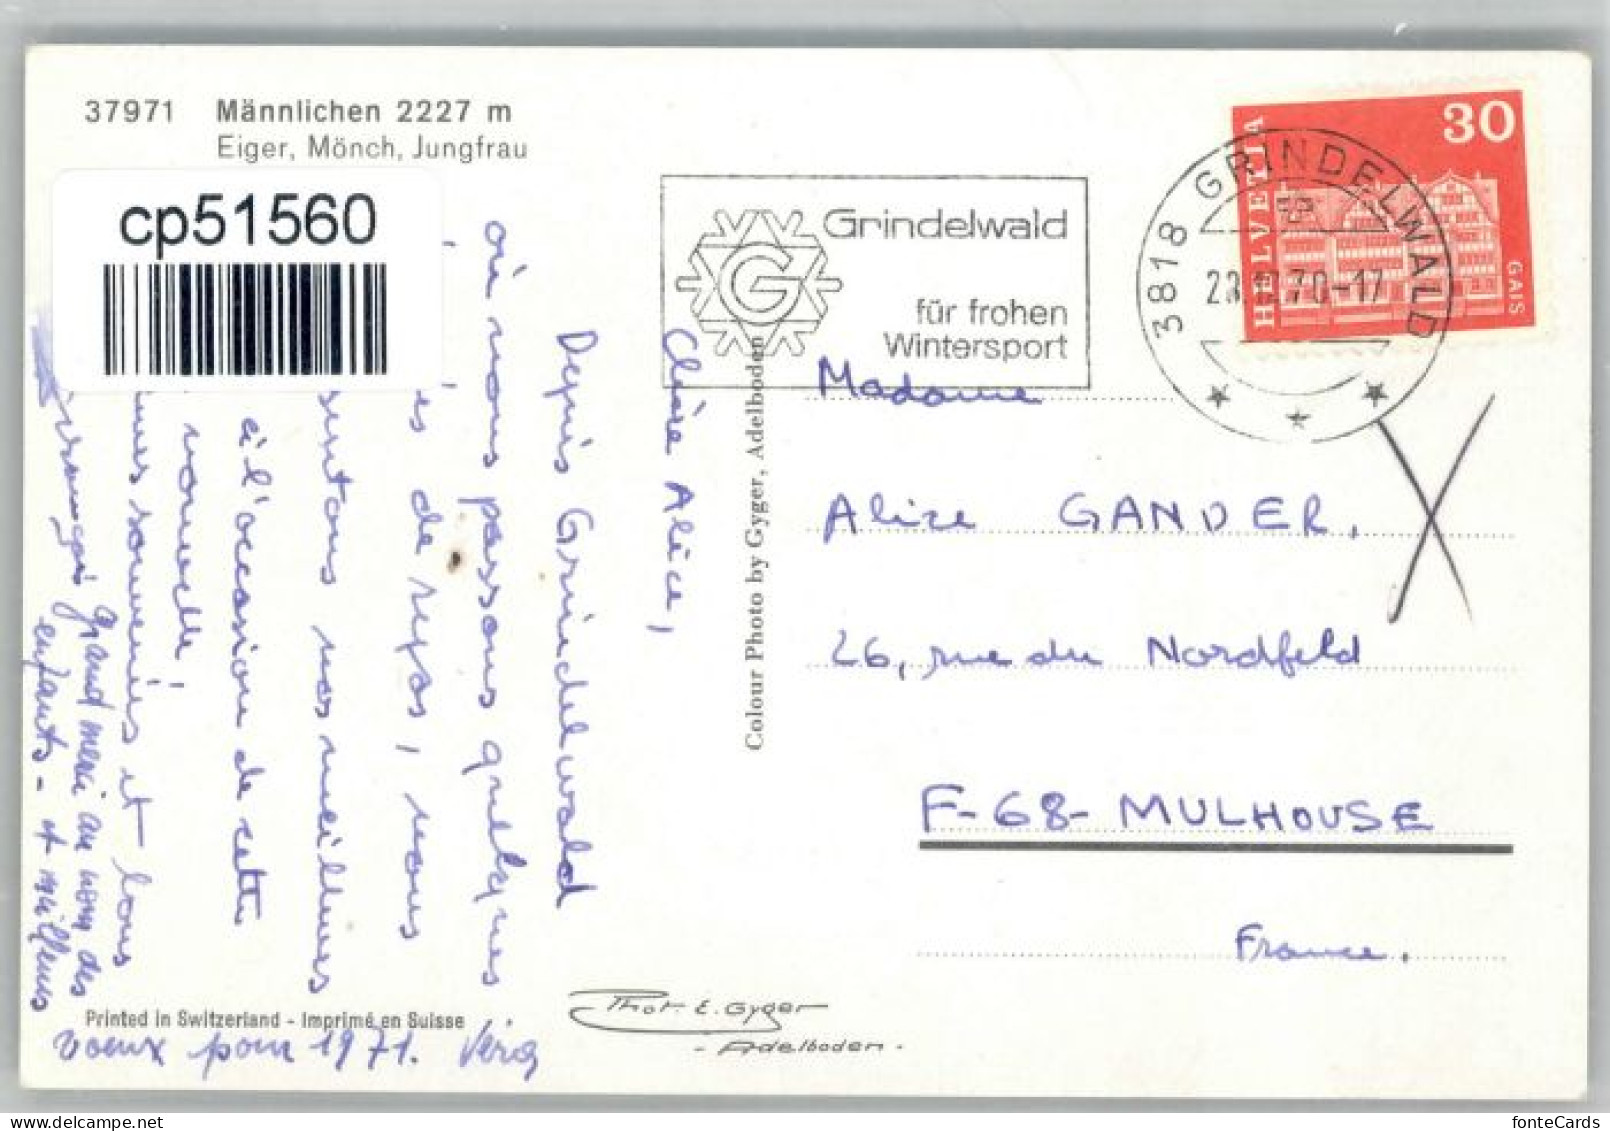 37971 Männlichen 2227 m
Eiger, Mönch, Jungfrau
cp51560
Grindelwald
für frohen
Wintersport
G
3818 GRINDELWALD
70-17
HELVETIA
30
GAIS
Chère Alice,
Depuis Grindelwald
où nous passons quelques
de repos, nous
nos meilleures
à l'occasion de cette
nouvelle
souvenirs et bons
grand merci au nom des
enfants - et meilleurs
voeux pour 1971.
Colour Photo by Gyger, Adelboden
Madame
Alice GANDER,
26, rue du Nordfeld
F-68- MULHOUSE
France.
Printed in Switzerland - Imprimé en Suisse
Phot. E. Gyger
- Adelboden -
fonteCards